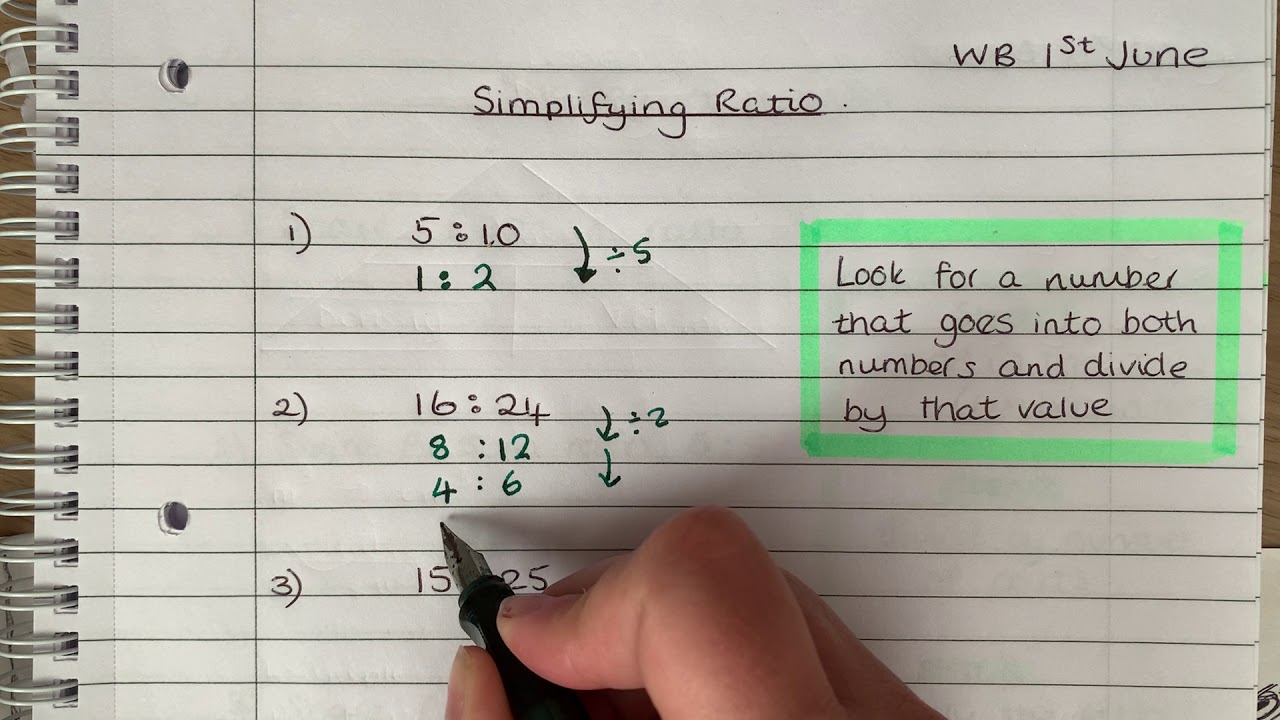 WB 1st June
Simplifying Ratio.
1) 5:10
1:2 ÷5
Look for a number
that goes into both
numbers and divide
by that value
2) 16:24
8:12 ÷2
4:6
3) 15 25